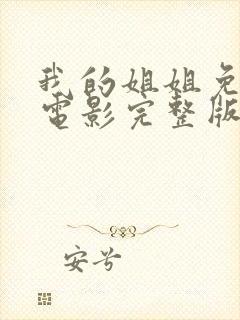 我的姐姐免
電影完整版
安兮